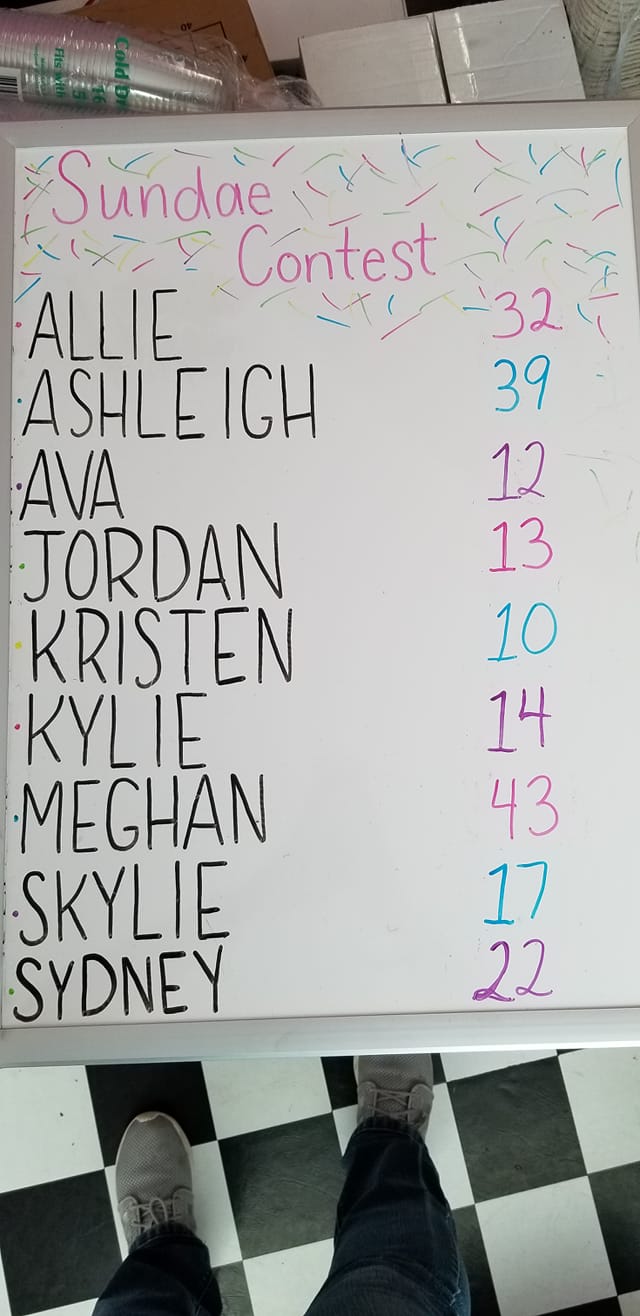 Cold Dr
Fits with
16
5
40
Sundae
Contest
ALLIE 32
ASHLEIGH 39
AVA 12
JORDAN 13
KRISTEN 10
KYLIE 14
MEGHAN 43
SKYLIE 17
SYDNEY 22